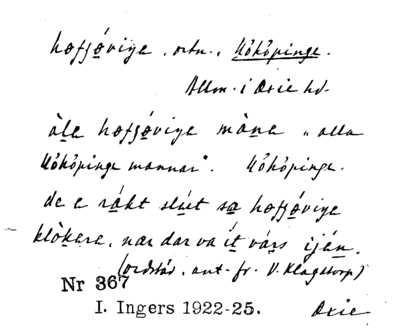 hœfʃǫ́viŋe, ortn., Kökӧpinge.
Allm. i Oxie hd.
àlạ hœfʃǫ́viŋe mànạ "alla
Kököpinge mannar". Kököpinge.
de e rákt slút sạ hœfʃǫ́viŋe
klòkara, nær dar va ít várs ijén.
(ordstäv, ant. fr. V. Klagstorp)
Nr 367
I. Ingers 1922-25. Oxie